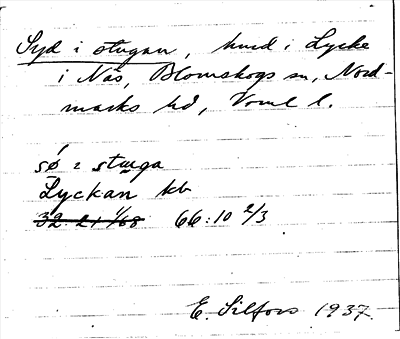 Syd i stugan, hmd i Lycke
i Näs, Blomskogs sn, Nord-
marks hd, Vrml l.
sø̀ 2 stuga
Lyckan kb
32. 21 1/68 66:10 2/3
E. Silfors 1937.